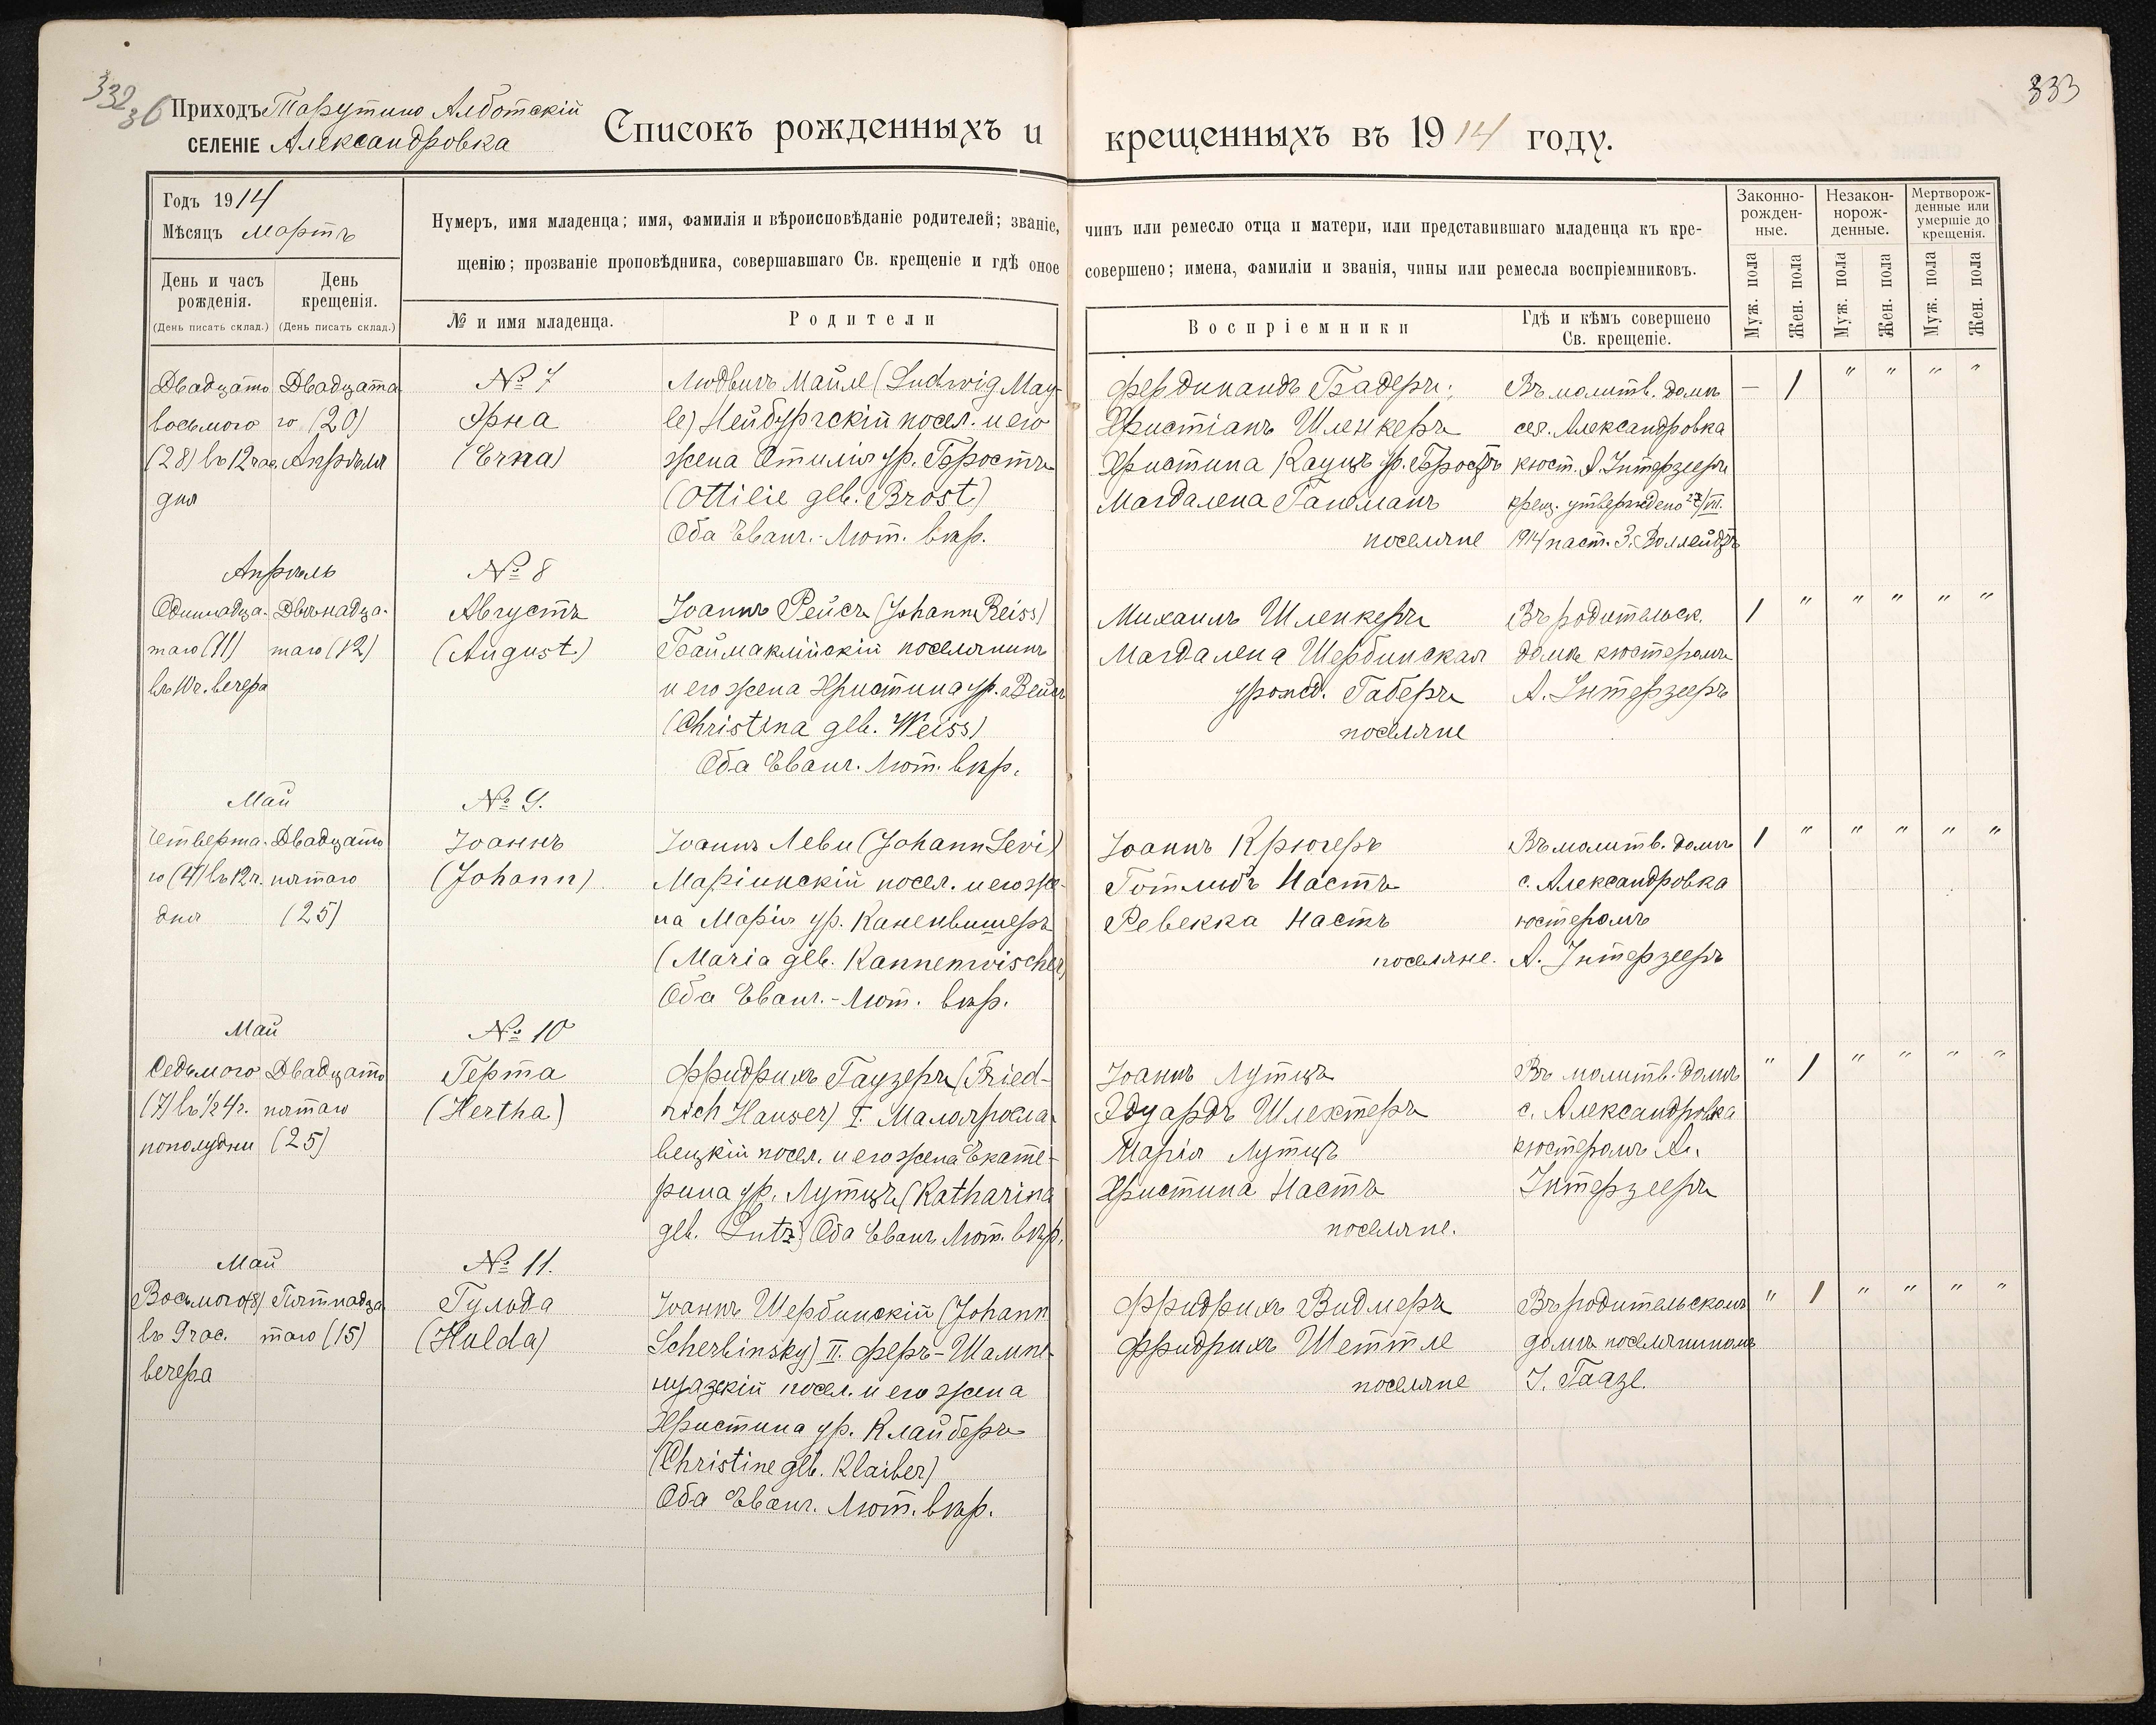 332
36
333
Приходъ Тарутино Алботскій
СЕЛЕНІЕ Александровка
Списокъ рожденныхъ и крещенныхъ въ 1914 году.
Годъ 1914
Мѣсяцъ Мартъ
День и часъ рожденія.
(День писать склад.)
День крещенія.
(День писать склад.)
Нумеръ, имя младенца; имя, фамилія и вѣроисповѣданіе родителей; званіе, чинъ или ремесло отца и матери, или представившаго младенца къ кре-
щенію; прозваніе проповѣдника, совершавшаго Св. крещеніе и гдѣ оное совершено; имена, фамиліи и званія, чины или ремесла воспріемниковъ.
№ и имя младенца.
Родители
Воспріемники
Гдѣ и кѣмъ совершено
Св. крещеніе.
Законно-
рожден-
ные.
Незакон-
норож-
денные.
Мертворож-
денные или
умершіе до
крещенія.
Муж. пола
Жен. пола
Муж. пола
Жен. пола
Муж. пола
Жен. пола
Двадцать
восьмого
(28) въ 12 час.
дня
Двадцата
го (20)
Апрѣля
№ 7
Эрна
(Erna)
Людвигъ Майле (Ludwig May-
le) Нейбургскій посел. и его
жена Отилія ур. Бростъ
(Ottilie geb. Brost)
Оба Еванг.-Лют. вѣр.
Фердинандъ Бадеръ;
Христіанъ Шленкеръ
Христина Кауцъ ур. Бростъ
Магдалена Гансманъ
поселяне
Въ молитв. домѣ
сел. Александровка
кюст. А. Интерзееръ
крещ. утверждено 27/VII.
1914 паст. Э. Воллейдтъ
— 1 " " " "
Апрѣль
Одиннадца-
таго (11)
въ 10 ч. вечера
Двѣнадца-
таго (12)
№ 8
Августъ
(August)
Іоаннъ Рейсъ (Johann Reiss)
Баймаклійскій поселянинъ
и его жена Христина ур. Вейсъ
(Christina geb. Weiss)
Оба Еванг. Лют. вѣр.
Михаилъ Шленкеръ
Магдалена Щербинская
урожд. Габеръ
поселяне
Въ родительск.
домѣ кюстеромъ
А. Интерзееръ
1 " " " " "
Май
Четверта-
го (4) въ 12 ч.
дня
Двадцать
пятаго
(25)
№ 9.
Іоаннъ
(Johann)
Іоаннъ Леви (Johann Levi)
Маріинскій посел. и его же-
на Марія ур. Каненвишеръ
(Maria geb. Kannenwischer)
Оба Еванг.-Лют. вѣр.
Іоаннъ Крюгеръ
Готлибъ Настъ
Ревекка Настъ
поселяне.
Въ молитв. домѣ
с. Александровка
юстеромъ
А. Интерзееръ
1 " " " " "
Май
Седьмого
(7) въ ½ 4 ч.
пополудни
Двадцать
пятаго
(25)
№ 10
Герта
(Hertha)
Фридрихъ Гаузеръ (Fried-
rich Hauser) I. Малояросла-
вецкій посел. и его жена Екате-
рина ур. Лутцъ (Katharina
geb. Lutz) Оба Еванг. Лют. вѣр.
Іоаннъ Лутцъ
Эдуардъ Шлехтеръ
Марія Лутцъ
Христина Настъ
поселяне.
Въ молитв. домѣ
с. Александровка
кюстеромъ А.
Интерзееръ
" 1 " " " "
Май
Восьмого (8)
въ 9 час.
вечера
Пятнадца
таго (15)
№ 11.
Гульда
(Hulda)
Іоаннъ Щербинскій (Johann
Scherbinsky) II. Феръ-Шампе-
нуазскій посел. и его жена
Христина ур. Клайберъ
(Christine geb. Klaiber)
Оба Еванг. Лют. вѣр.
Фридрихъ Видмеръ
Фридрихъ Шеттле
поселяне
Въ родительскомъ
домѣ поселяниномъ
І. Гаазе.
" 1 " " " "